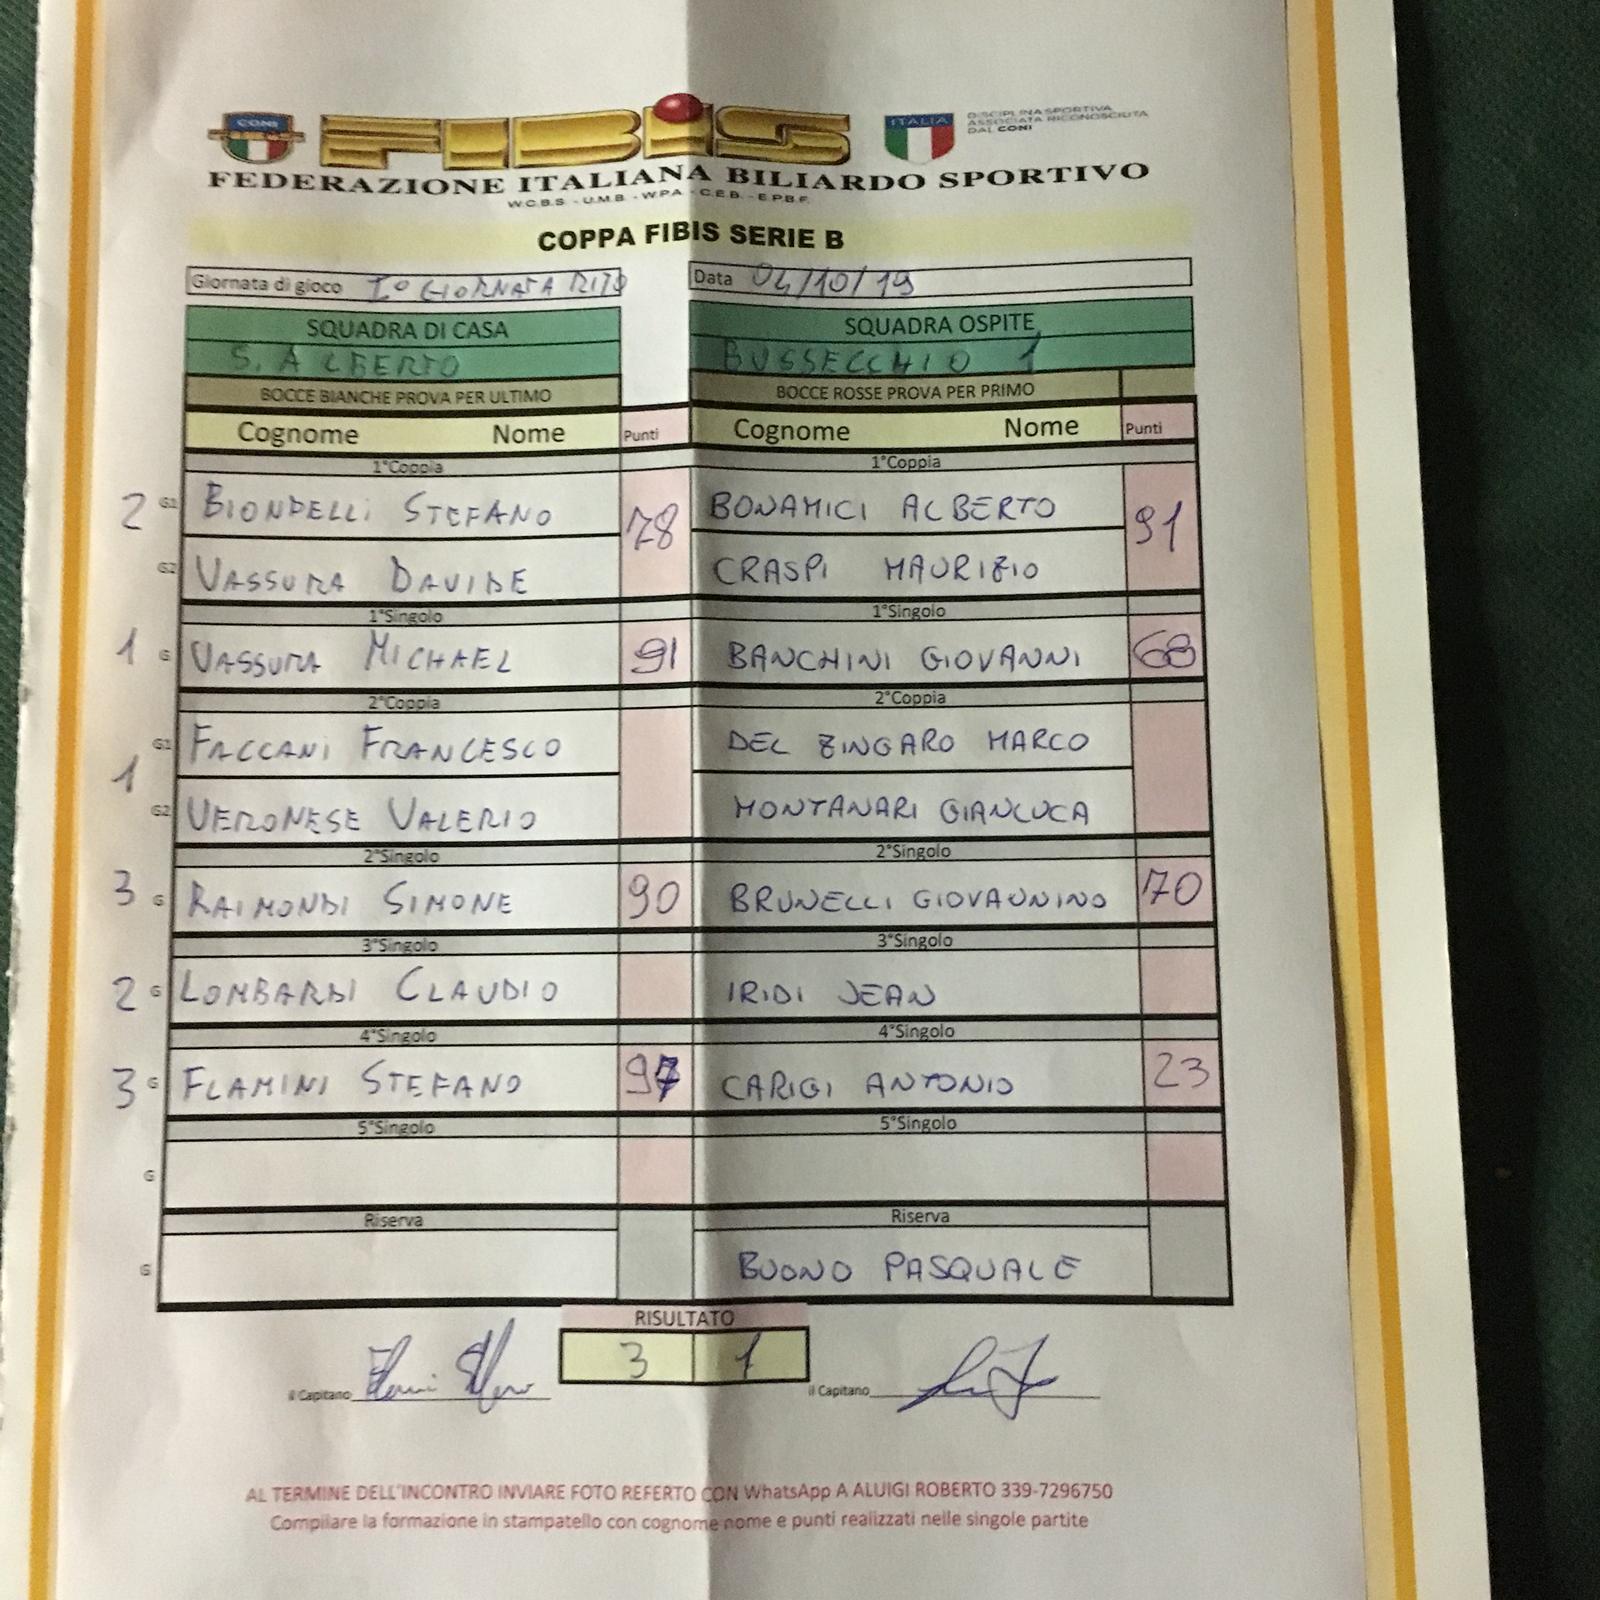 CONI
FIBIS
ITALIA
DISCIPLINA SPORTIVA
ASSOCIATA RICONOSCIUTA
DAL CONI
FEDERAZIONE ITALIANA BILIARDO SPORTIVO
W.C.B.S - U.M.B - W.P.A - C.E.B. - E.P.B.F.
COPPA FIBIS SERIE B
Giornata di gioco I° GIORNATA Data 04/10/19
SQUADRA DI CASA SQUADRA OSPITE
S. ALBERTO BUSSECCHIO 1
BOCCE BIANCHE PROVA PER ULTIMO BOCCE ROSSE PROVA PER PRIMO
Cognome Nome Punti Cognome Nome Punti
1°Coppia 1°Coppia
2 G1 BIONDELLI STEFANO 78 BONAMICI ALBERTO 91
G2 VASSURA DAVIDE CRASPI MAURIZIO
1°Singolo 1°Singolo
1 G VASSURA MICHAEL 91 BANCHINI GIOVANNI 68
2°Coppia 2°Coppia
1 G1 FACCANI FRANCESCO DEL ZINGARO MARCO
G2 VERONESE VALERIO MONTANARI GIANLUCA
2°Singolo 2°Singolo
3 G RAIMONDI SIMONE 90 BRUNELLI GIOVANNINO 70
3°Singolo 3°Singolo
2 G LOMBARDI CLAUDIO IRIDI JEAN
4°Singolo 4°Singolo
3 G FLAMINI STEFANO 97 CARIGI ANTONIO 23
5°Singolo 5°Singolo
G
Riserva Riserva
G BUONO PASQUALE
RISULTATO
3 1
il Capitano il Capitano
AL TERMINE DELL'INCONTRO INVIARE FOTO REFERTO CON WhatsApp A ALUIGI ROBERTO 339-7296750
Compilare la formazione in stampatello con cognome nome e punti realizzati nelle singole partite